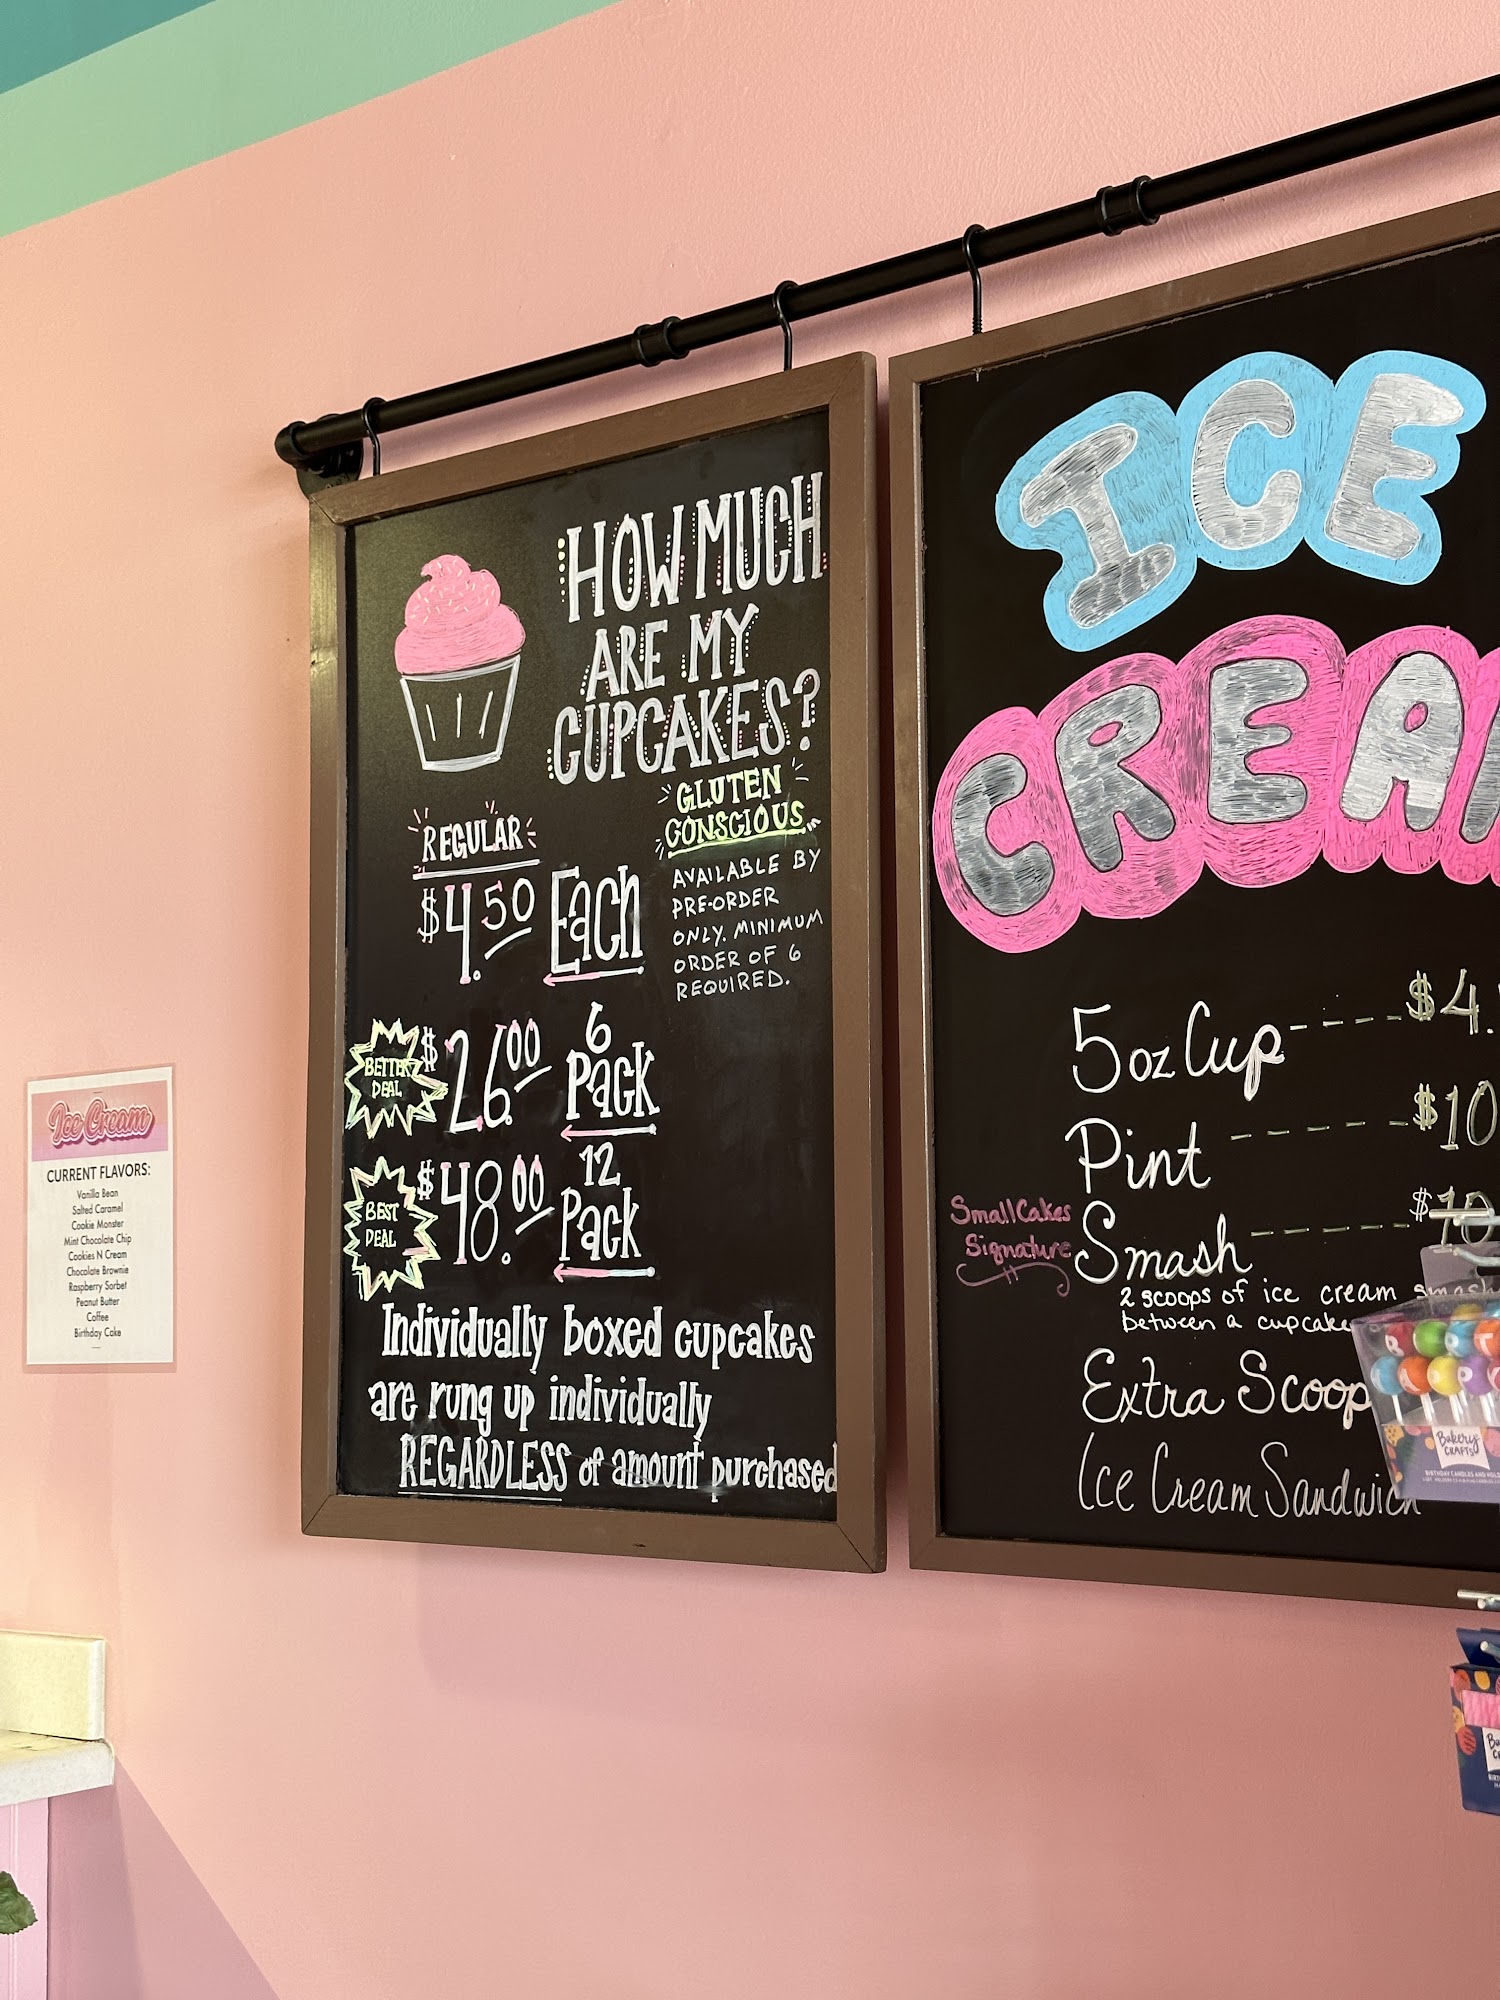 HOW MUCH
ARE MY
CUPCAKES?
GLUTEN
CONSCIOUS
AVAILABLE BY
PRE-ORDER
ONLY. MINIMUM
ORDER OF 6
REQUIRED.
REGULAR
$4.50 Each
BETTER
DEAL
$26.00 6
Pack
BEST
DEAL
$48.00 12
Pack
Individually boxed cupcakes
are rung up individually
REGARDLESS of amount purchased
ICE
CREA
5 oz Cup ---- $4.
Pint ------ $10
SmallCakes
Signature
Smash ------ $10
2 scoops of ice cream smash
between a cupcake
Extra Scoop
Ice Cream Sandwich
Ice Cream
CURRENT FLAVORS:
Vanilla Bean
Salted Caramel
Cookie Monster
Mint Chocolate Chip
Cookies N Cream
Chocolate Brownie
Raspberry Sorbet
Peanut Butter
Coffee
Birthday Cake
Bakery
CRAFTS
BIRTHDAY CANDLES AND